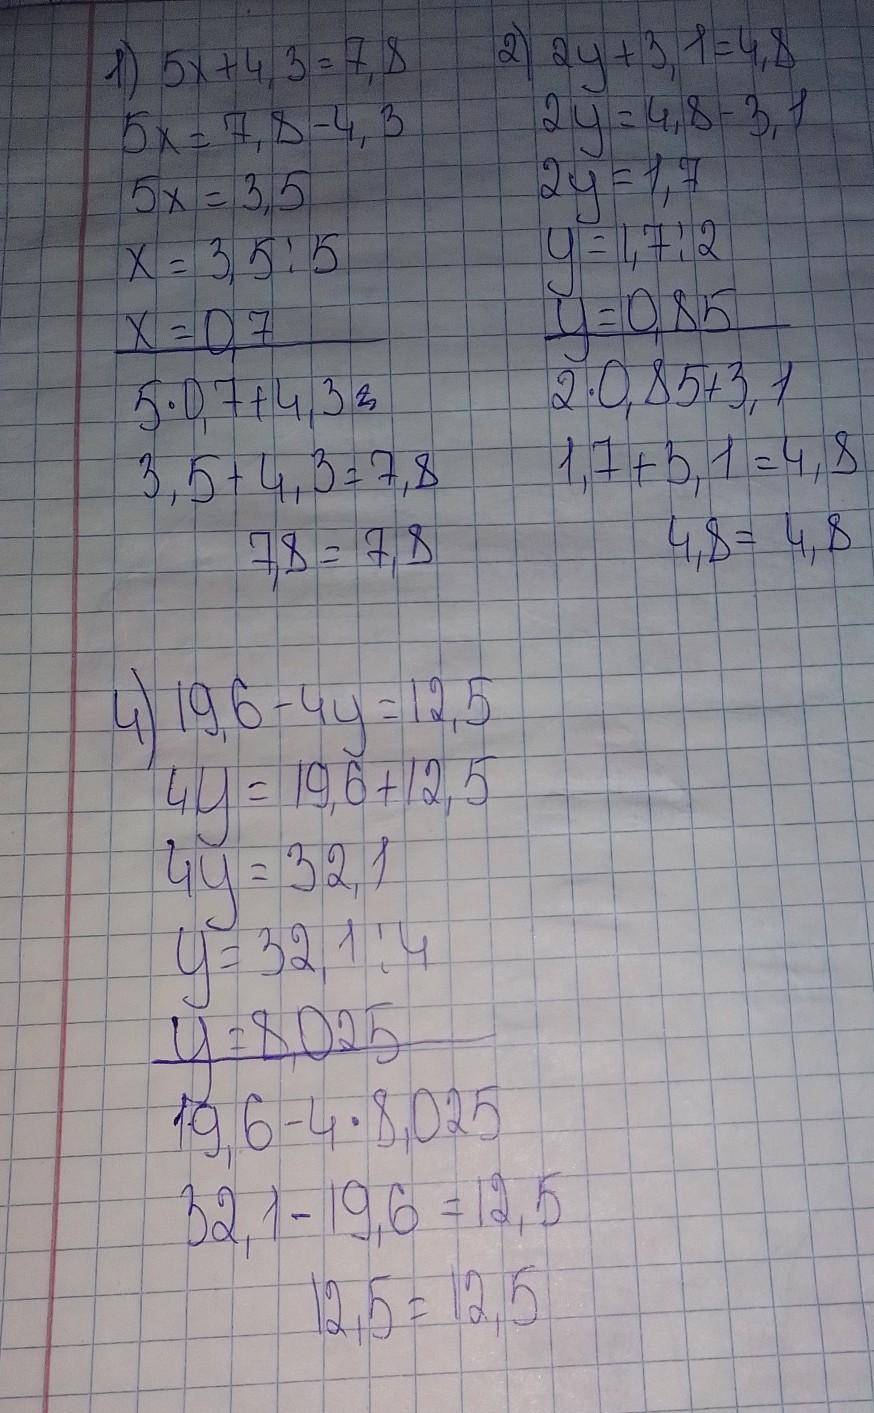 1) 5x+4,3=7,8
5x=7,8-4,3
5x=3,5
x=3,5:5
x=0,7
5·0,7+4,3=
3,5+4,3=7,8
7,8=7,8
2) 2y+3,1=4,8
2y=4,8-3,1
2y=1,7
y=1,7:2
y=0,85
2·0,85+3,1
1,7+3,1=4,8
4,8=4,8
4) 19,6-4y=12,5
4y=19,6+12,5
4y=32,1
y=32,1:4
y=8,025
19,6-4·8,025
32,1-19,6=12,5
12,5=12,5